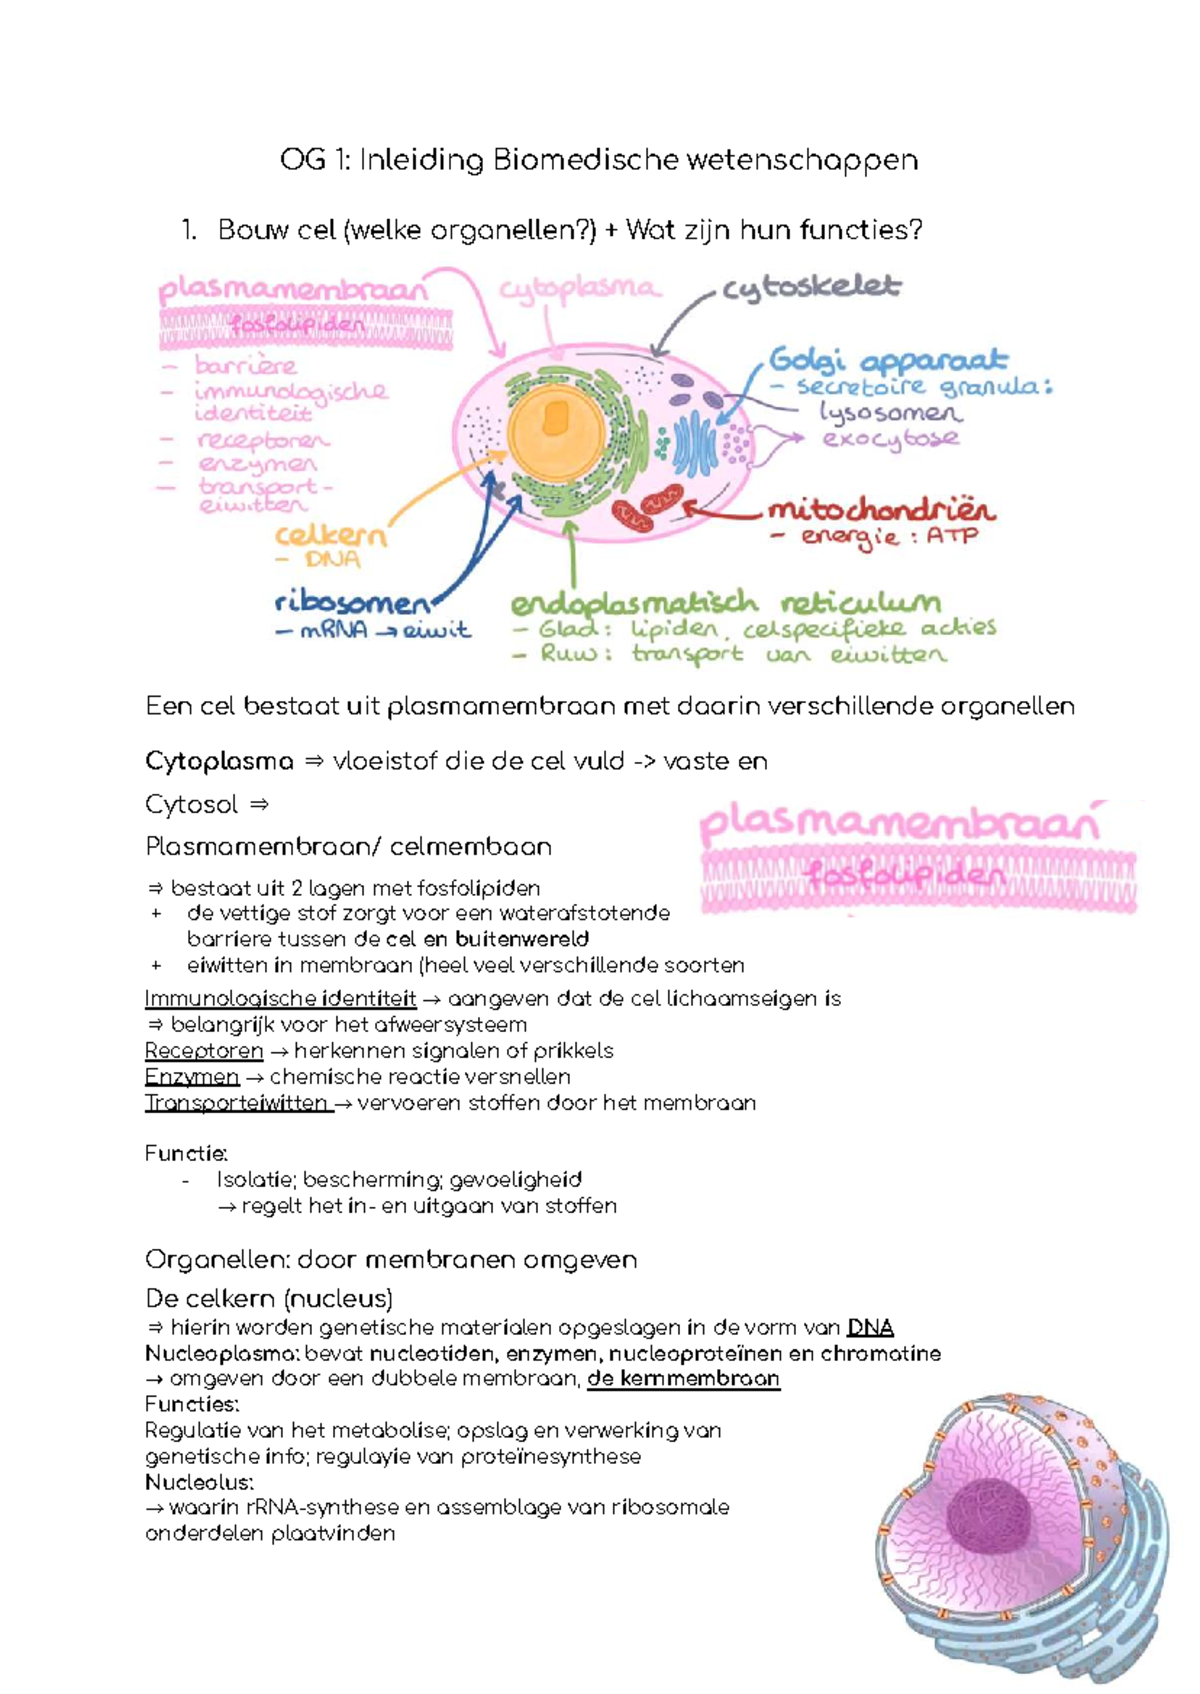 OG 1: Inleiding Biomedische wetenschappen
1. Bouw cel (welke organellen?) + Wat zijn hun functies?
plasmamembraan
fosfolipiden
- barrière
- immunologische
identiteit
- receptoren
- enzymen
- transport-
eiwitten
cytoplasma
cytoskelet
Golgi apparaat
- secretoire granula:
lysosomen
exocytose
mitochondriën
- energie : ATP
celkern
- DNA
ribosomen
- mRNA → eiwit
endoplasmatisch reticulum
- Glad: lipiden, celspecifieke acties
- Ruw: transport van eiwitten
Een cel bestaat uit plasmamembraan met daarin verschillende organellen
Cytoplasma ⇒ vloeistof die de cel vuld -> vaste en
Cytosol ⇒
Plasmamembraan/ celmembaan
plasmamembraan
fosfolipiden
⇒ bestaat uit 2 lagen met fosfolipiden
+ de vettige stof zorgt voor een waterafstotende
barriere tussen de cel en buitenwereld
+ eiwitten in membraan (heel veel verschillende soorten
Immunologische identiteit → aangeven dat de cel lichaamseigen is
⇒ belangrijk voor het afweersysteem
Receptoren → herkennen signalen of prikkels
Enzymen → chemische reactie versnellen
Transporteiwitten → vervoeren stoffen door het membraan
Functie:
- Isolatie; bescherming; gevoeligheid
→ regelt het in- en uitgaan van stoffen
Organellen: door membranen omgeven
De celkern (nucleus)
⇒ hierin worden genetische materialen opgeslagen in de vorm van DNA
Nucleoplasma: bevat nucleotiden, enzymen, nucleoproteïnen en chromatine
→ omgeven door een dubbele membraan, de kernmembraan
Functies:
Regulatie van het metabolise; opslag en verwerking van
genetische info; regulayie van proteïnesynthese
Nucleolus:
→ waarin rRNA-synthese en assemblage van ribosomale
onderdelen plaatvinden